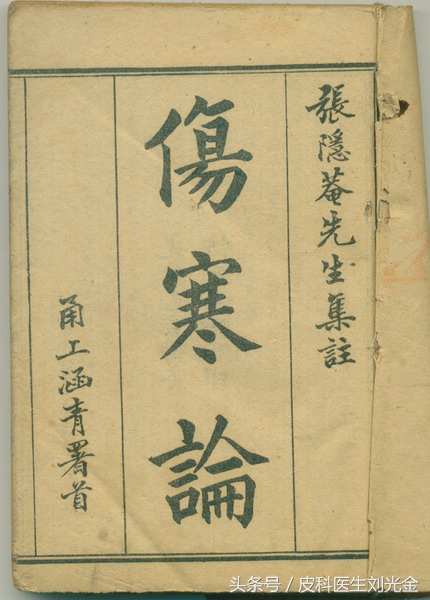 張隱菴先生集註
傷寒論
甬工涵青署首
头条号 / 皮科医生刘光金